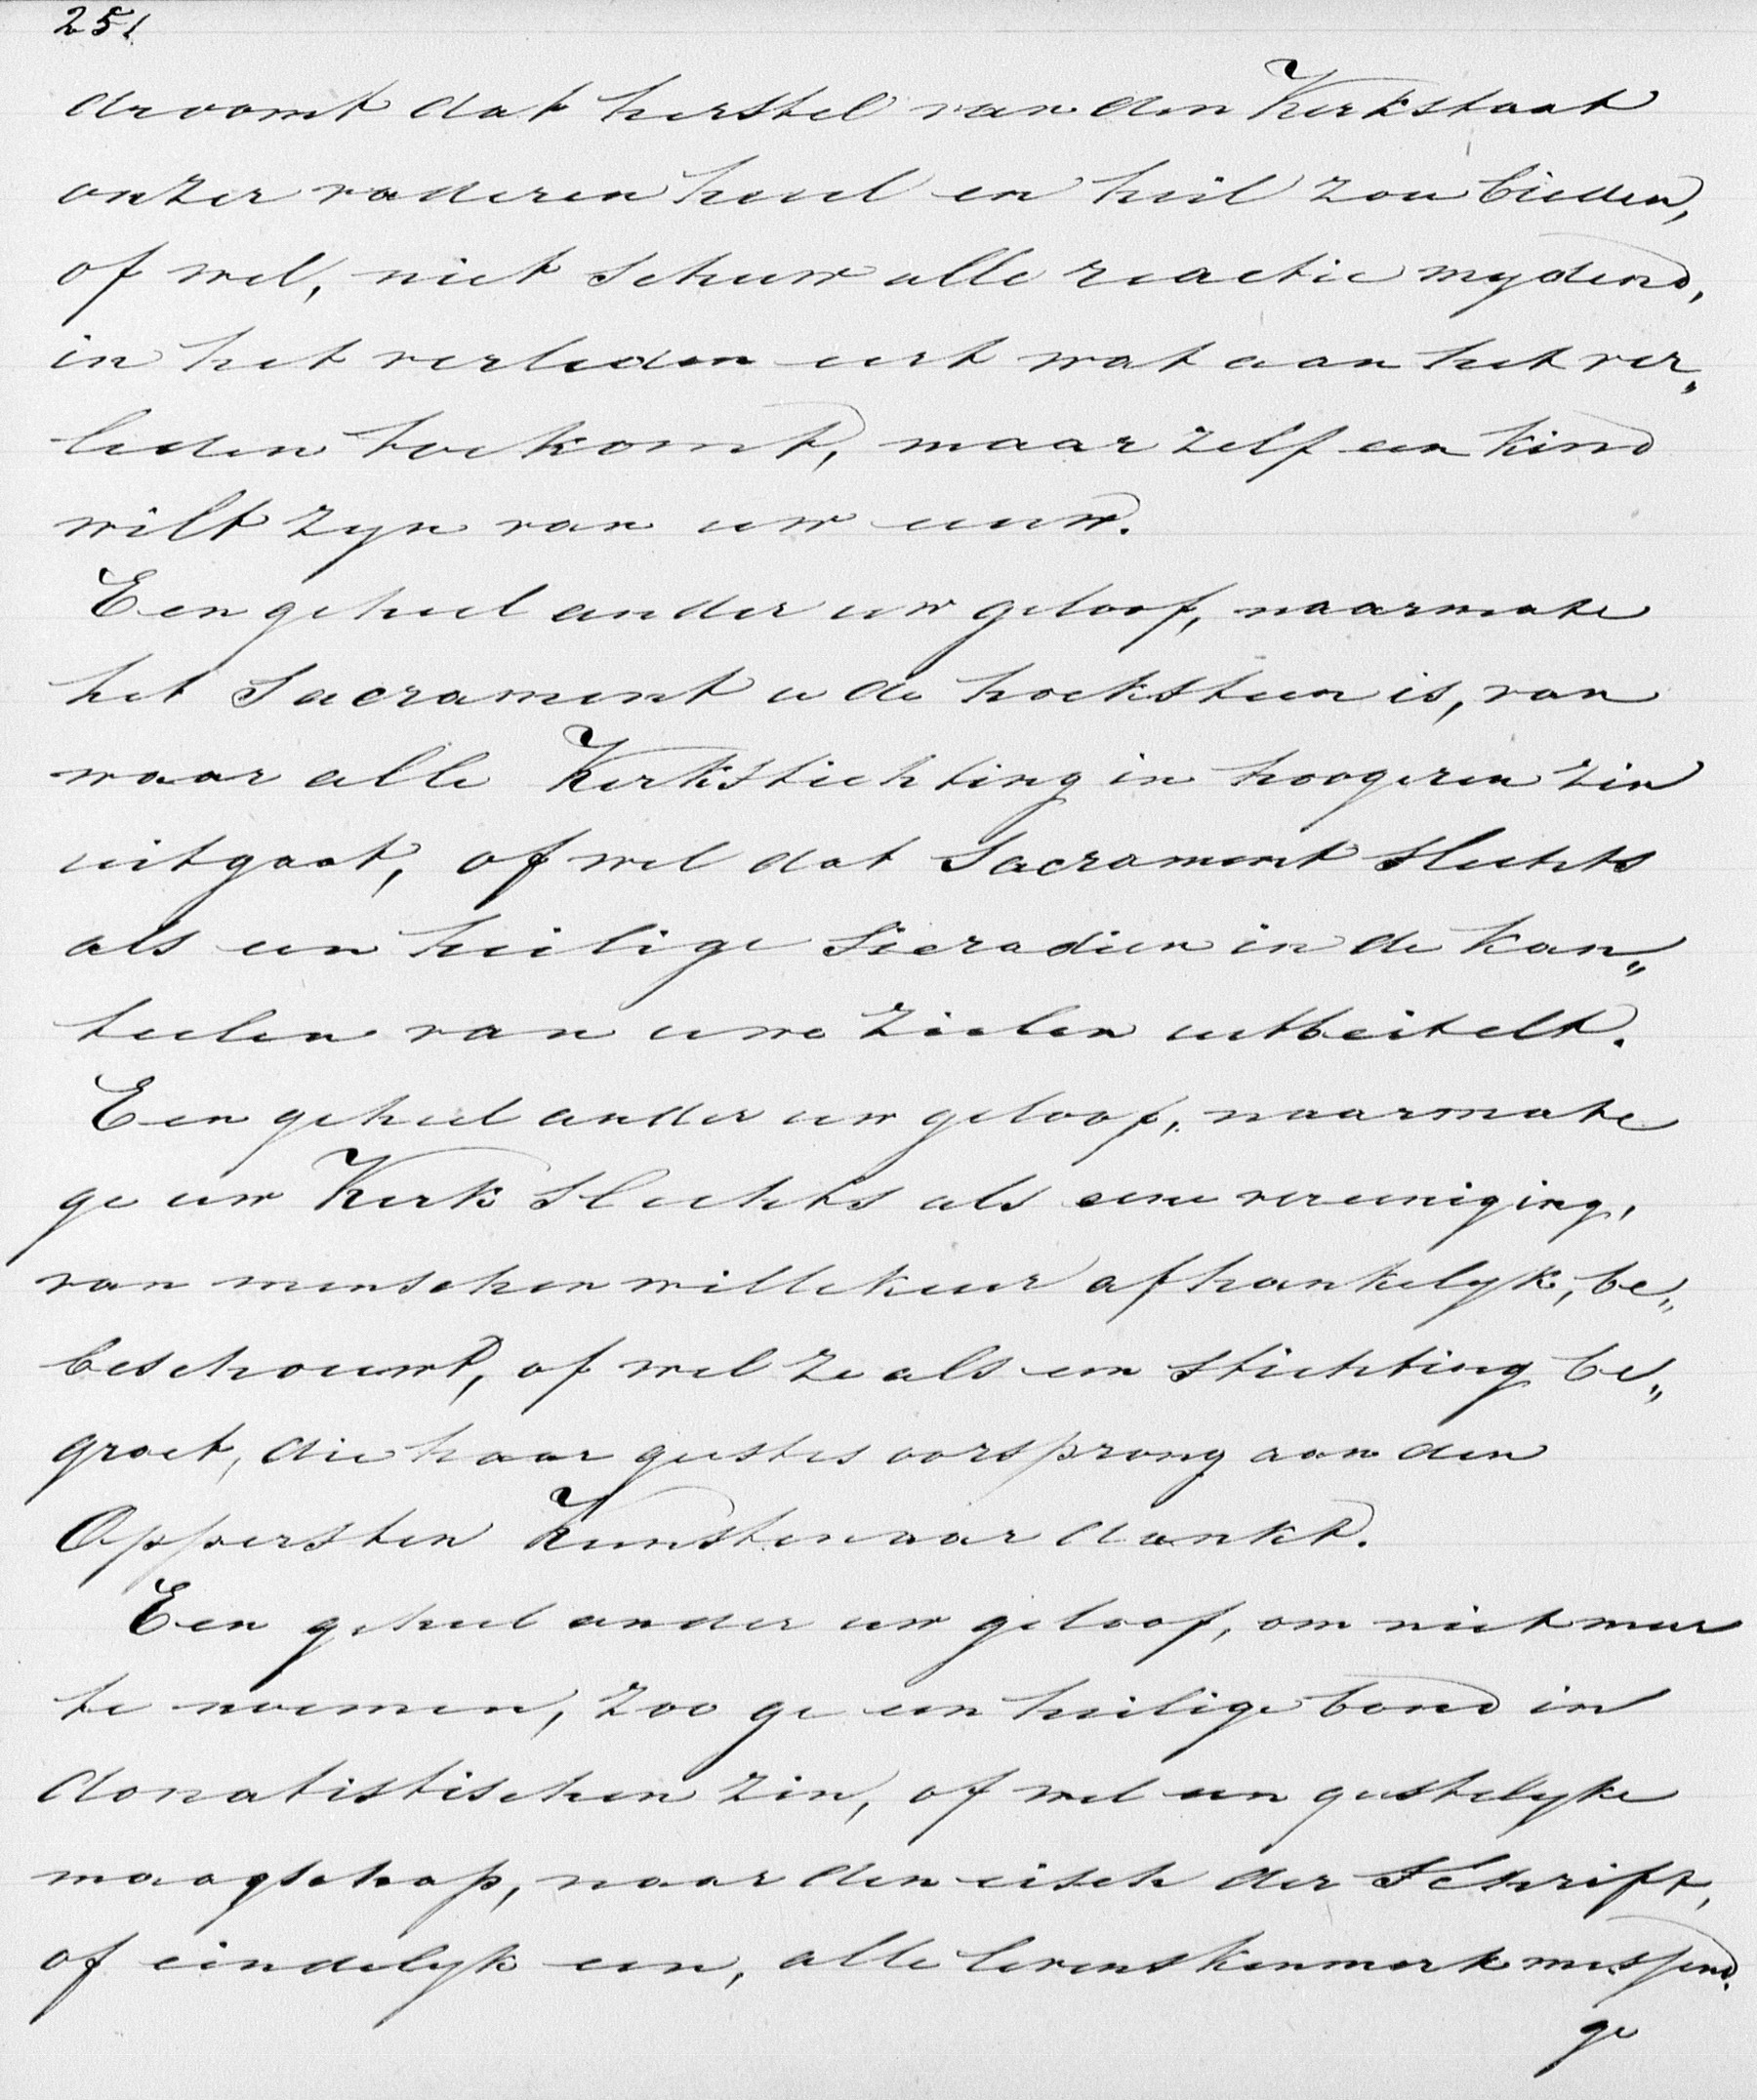 251.
droomt dat herstel van den Kerkstaat
onzer vaderen heul en heil zou bieden,
of wel, niet schuw alle reactie mydend,
in het verleden eert wat aan het ver„
leden toekomt, maar zelf een kind
wilt zyn van uw eeuw.
Een geheel ander uw geloof, naarmate
het Sacrament u de hoeksteen is, van
waar alle Kerkstichting in hoogeren zin
uitgaat, of wel dat Sacrament slechts
als een heilige sieradien in de kan„
teelen van uwe zielen uitbeitelt.
Een geheel ander uw geloof, naarmate
ge uw Kerk slechts als eene vereeniging,
van menschen willekeur afhankelyk, be„
beschouwt, of wel ze als een stichting be„
groet, die haar geestes oorsprong aan den
Oppersten Kunstenaar dankt.
Een geheel ander uw geloof, om niet meer
te noemen, zoo ge een heilige bond in
donatistischen zin, of wel een geestelyke
maagschap, naar den eisch der Schrift,
of eindelyk een, alle levenskenmerk missend.
ge